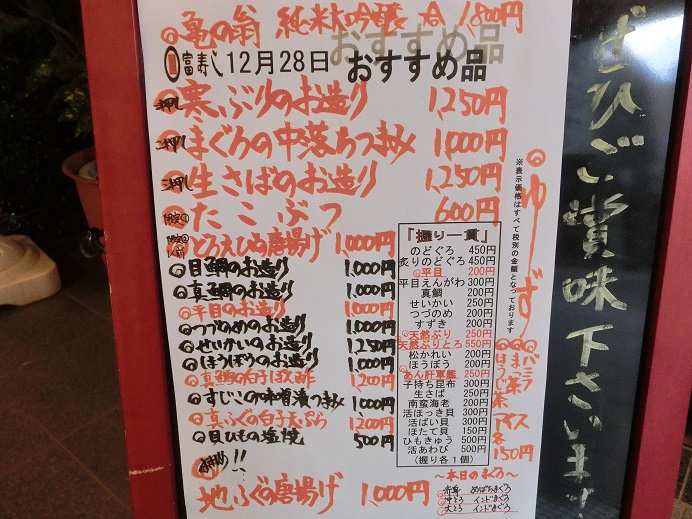 亀の翁 純米大吟醸 一合 1,800円
富寿し 12月28日 おすすめ品
一押し 寒ぶりのお造り 1,250円
二押し まぐろの中落ちつまみ 1,000円
三押し 生さばのお造り 1,250円
限定① たこぶつ 600円
限定② とろえひれ唐揚げ 1,000円
目鯛のお造り 1,000円
真鯛のお造り 1,000円
平目のお造り 1,000円
つづのめのお造り 1,000円
せいかいのお造り 1,250円
ほうぼうのお造り 1,000円
真鱈の白子ぽん酢 1,200円
すじこの味噌漬つまみ 1,000円
真ふぐの白子天ぷら 1,200円
貝ひもの塩焼 500円
お勧め!!
地ふぐの唐揚げ 1,000円
『握り一貫』
のどぐろ 450円
炙りのどぐろ 450円
平目 200円
平目えんがわ 300円
真鯛 200円
せいかい 250円
つづのめ 200円
すずき 200円
天然ぶり 250円
天然ぶりとろ 550円
松かれい 200円
ほうぼう 200円
あん肝軍艦 250円
子持ち昆布 300円
生さば 250円
南蛮海老 200円
活ほっき貝 300円
活ばい貝 300円
ほたて貝 150円
ひもきゅう 500円
活あわび 500円
(握り各1個)
～本日のまぐろ～
赤身 めばちまぐろ
中とろ インドまぐろ
大とろ インドまぐろ
※表示価格はすべて税別の金額となっております
ゆず
バニラ
まっ茶
ほうじ茶
アイス
各150円
ぜひご賞味下さいませ